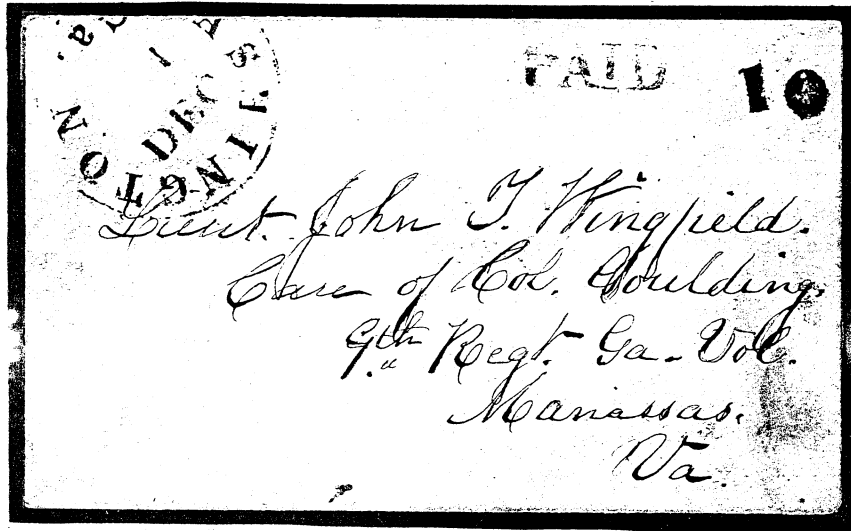 WASHINGTON Ga.
1
DEC
PAID
10
Lieut. John T. Wingfield.
Care of Col. Goulding,
9th Regt. Ga. Vol.
Manassas.
Va.